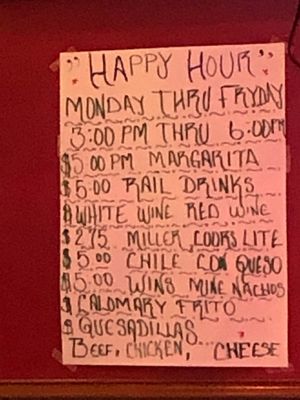 "HAPPY HOUR"
MONDAY THRU FRYDAY
3:00 PM THRU 6:00PM
$5 00 PM MARGARITA
$5:00 RAIL DRINKS
$ WHITE WINE RED WINE
$ 2.75 MILLER COORS LITE
$ 5.00 CHILE CON QUESO
$5.00 WINS MINE NACHOS
$ CALOMARY FRITO
$ QUESADILLAS...
BEEF, CHICKEN, CHEESE